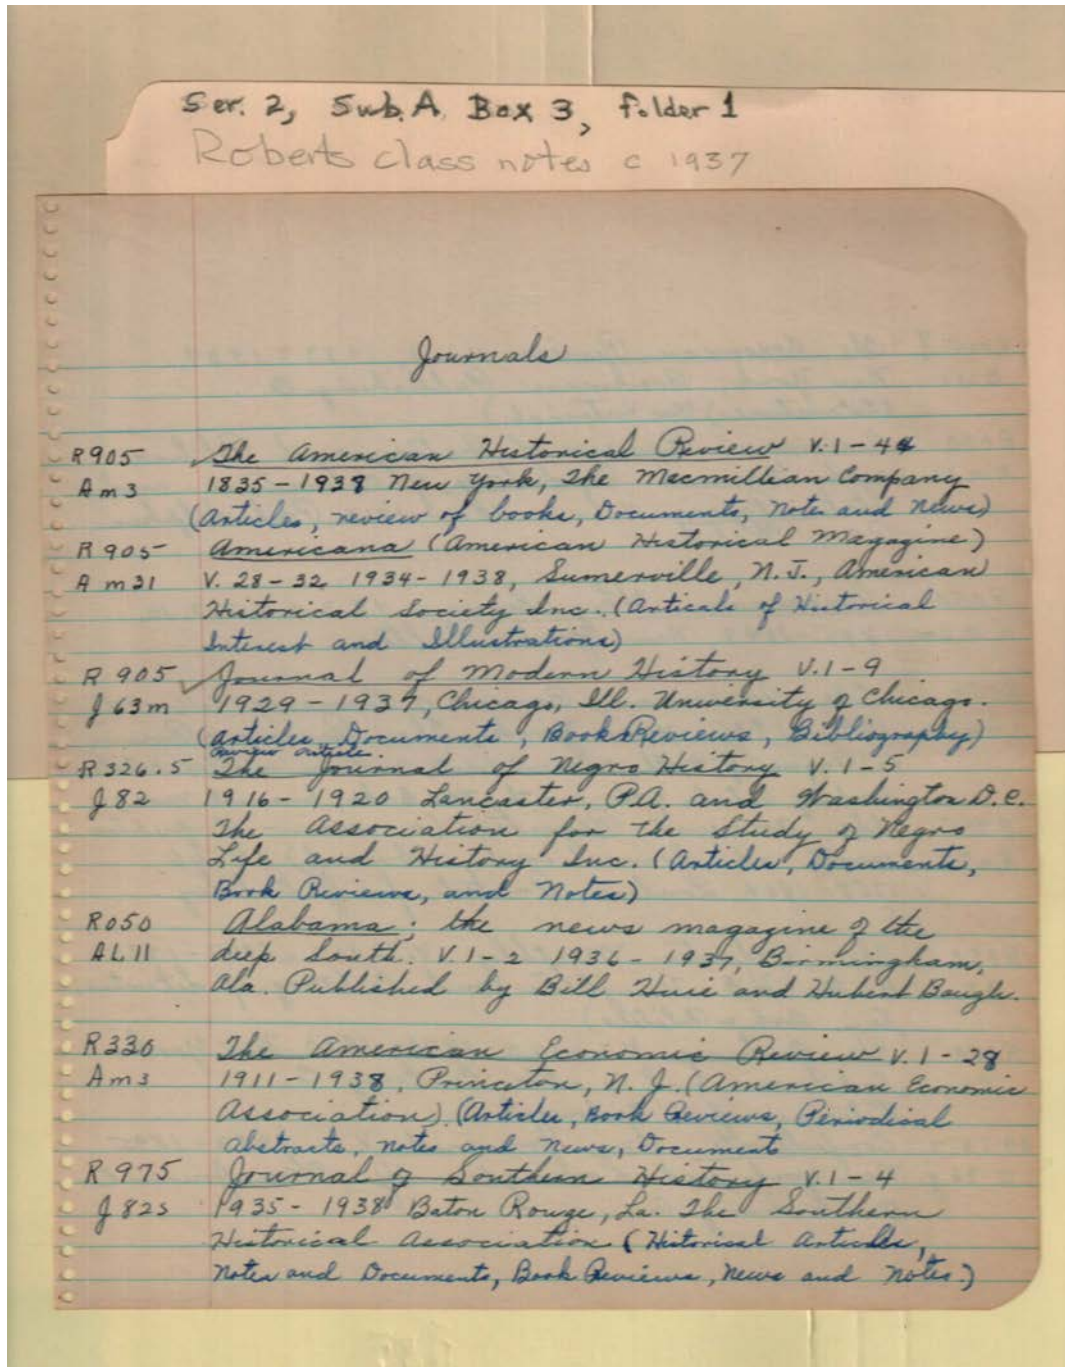 Ser. 2, Sub. A Box 3, folder 1
Roberts class notes c 1937
Journals
R905 The American Historical Review V. 1-44
Am3 1835-1938 New York, The Macmillian Company
(Articles, review of books, Documents, Notes and News)
R905 Americana (American Historical Magazine)
Am31 V. 28-32 1934-1938, Sumerville, N.J., American
Historical Society Inc. (Articals of Historical
Interest and Illustrations)
R905 Journal of Modern History V. 1-9
J63m 1929-1937, Chicago, Ill. University of Chicago.
(Articles, Documents, Book Reviews, Bibliography)
Review Article
R326.5 The Journal of Negro History V. 1-5
J82 1916-1920 Lancaster, P.A. and Washington D.C.
The Association for the Study of Negro
Life and History Inc. (Articles, Documents,
Book Reviews, and Notes)
R050 Alabama; the news magazine of the
AL11 deep South. V. 1-2 1936-1937, Birmingham,
Ala. Published by Bill Huie and Hubert Baugh.
R330 The American Economic Review V. 1-28
Am3 1911-1938, Princeton, N.J. (American Economic
Association) (Articles, Book Reviews, Periodical
Abstracts, Notes and News, Document
R975 Journal of Southern History V. 1-4
J82s 1935-1938 Baton Rouge, La. The Southern
Historical Association (Historical Articles,
Notes and Documents, Book Reviews, News and Notes.)